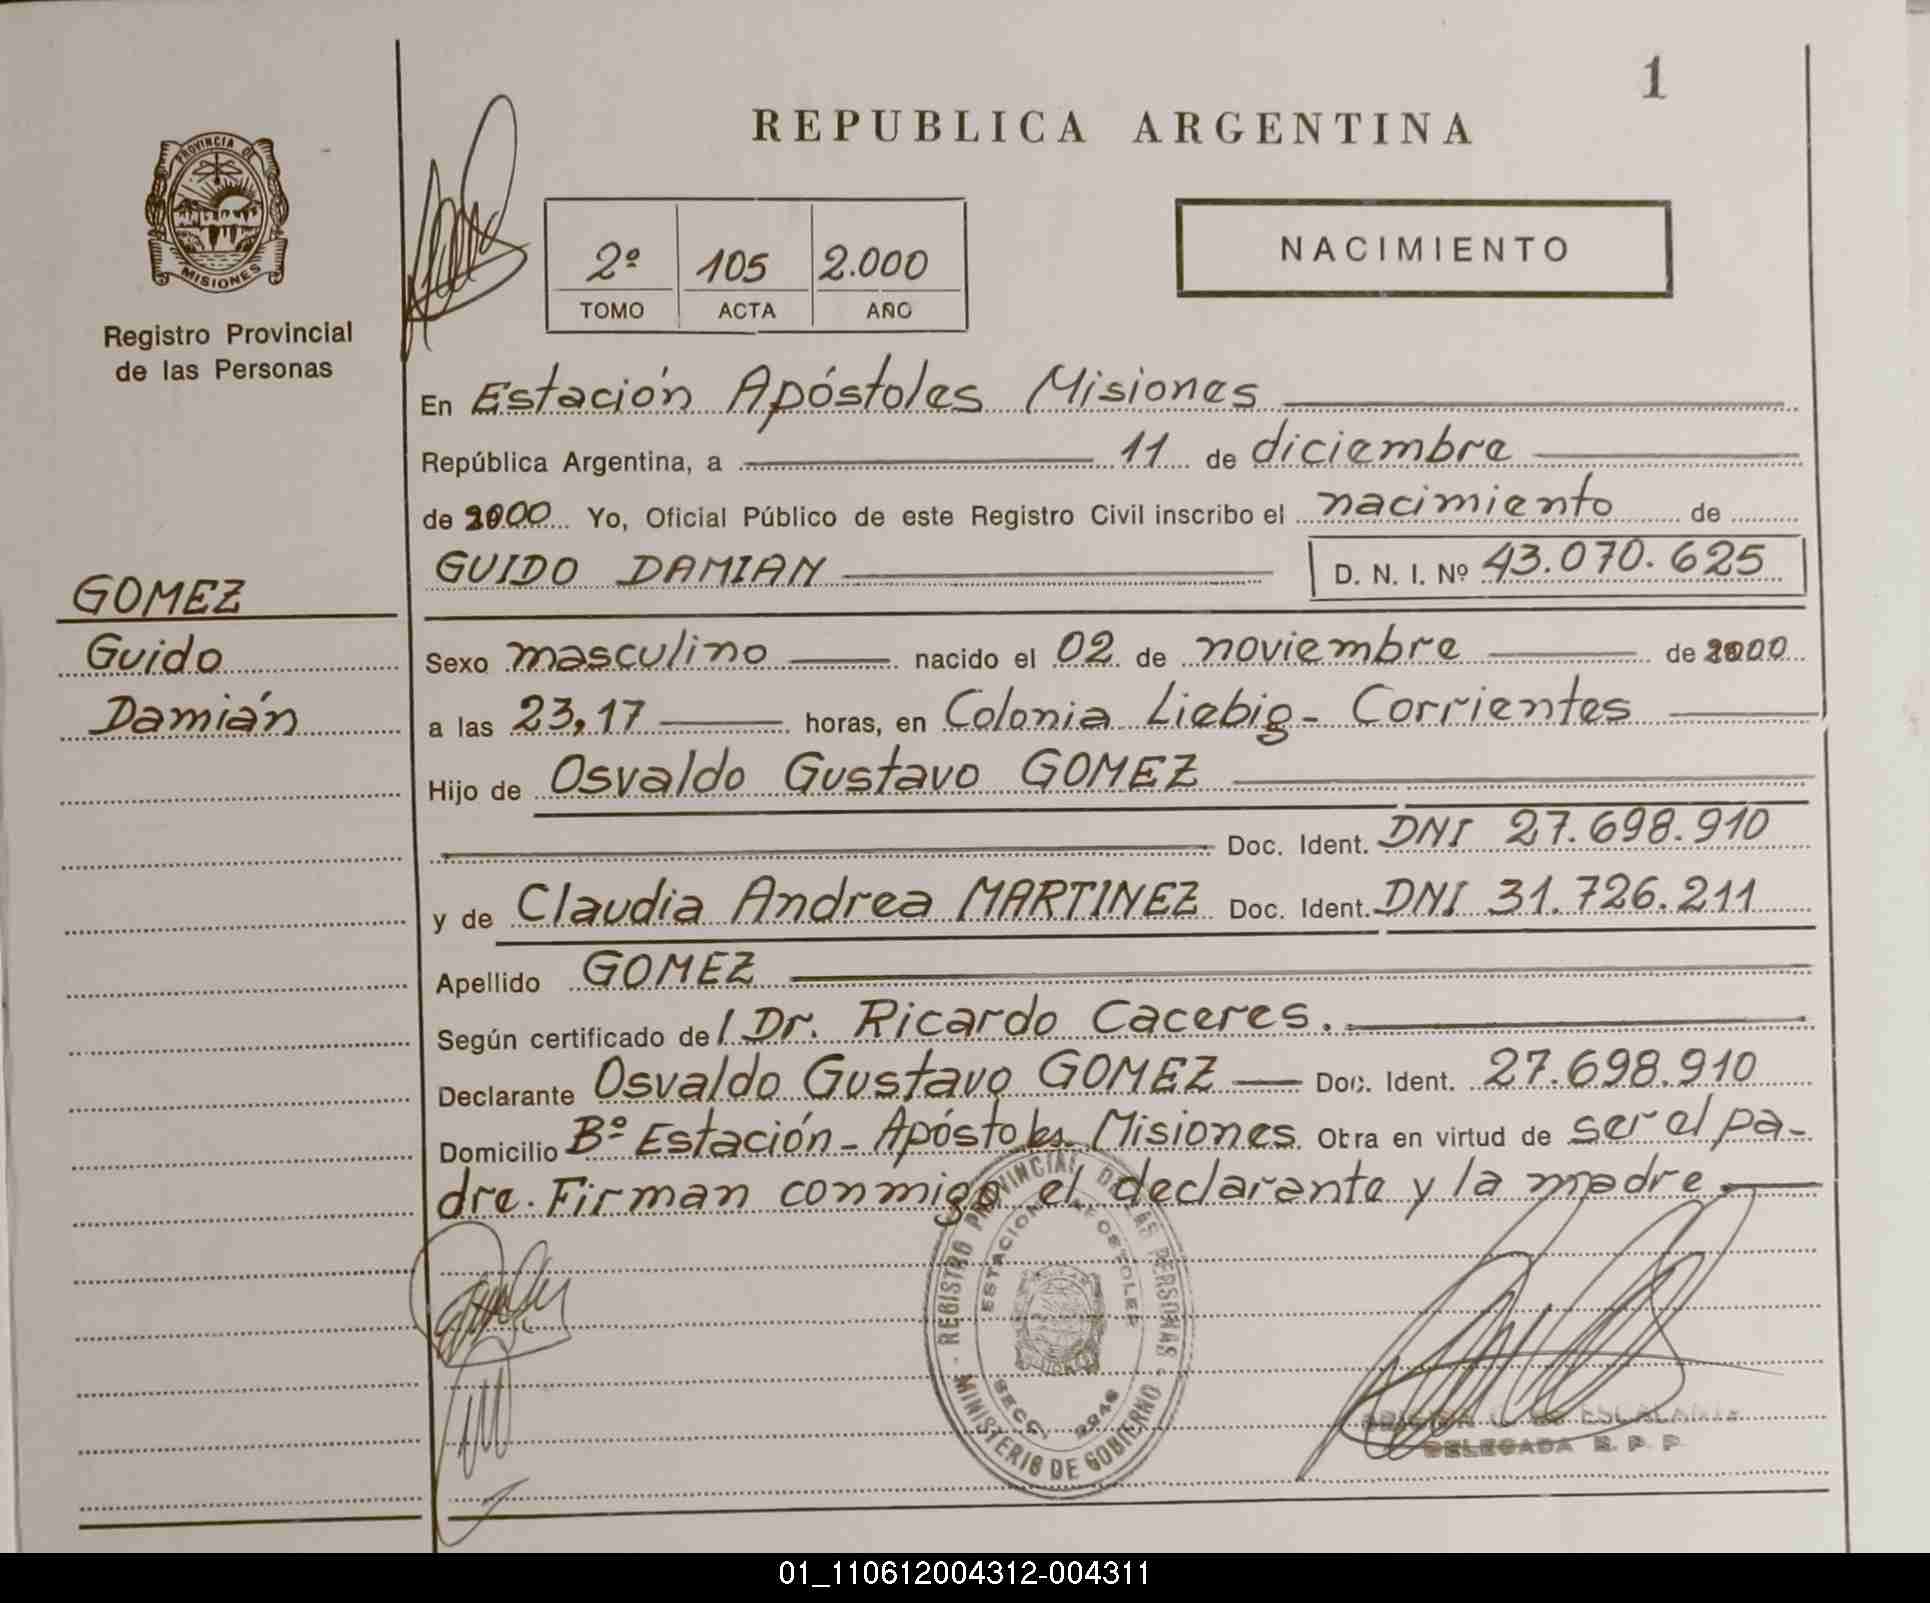 1
REPUBLICA ARGENTINA
PROVINCIA DE
MISIONES
Registro Provincial
de las Personas
2º 105 2.000
TOMO ACTA AÑO
NACIMIENTO
En Estación Apóstoles Misiones
República Argentina, a 11 de diciembre
de 2000 Yo, Oficial Público de este Registro Civil inscribo el nacimiento de
GUIDO DAMIAN D. N. I. Nº 43.070.625
GOMEZ
Guido
Damián
Sexo masculino nacido el 02 de noviembre de 2000
a las 23,17 horas, en Colonia Liebig - Corrientes
Hijo de Osvaldo Gustavo GOMEZ
Doc. Ident. DNI 27.698.910
y de Claudia Andrea MARTINEZ Doc. Ident. DNI 31.726.211
Apellido GOMEZ
Según certificado del Dr. Ricardo Caceres.
Declarante Osvaldo Gustavo GOMEZ Doc. Ident. 27.698.910
Domicilio Bº Estación - Apóstoles Misiones. Obra en virtud de ser el pa-
dre. Firman conmigo el declarante y la madre
REGISTRO PROVINCIAL DE LAS PERSONAS
ESTACION APOSTOLES
SECC.
MINISTERIO DE GOBIERNO
ESCALANTE
DELEGADA R. P. P.
01_110612004312-004311